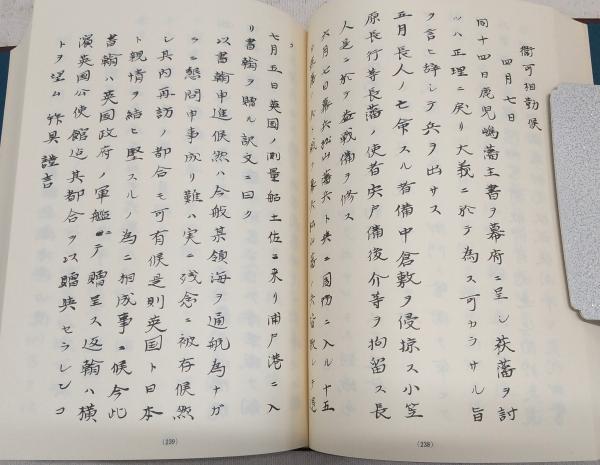 衛可相勤候
四月七日
同十四日鹿児嶋藩主書ヲ幕府ニ呈シ萩藩ヲ討
ツハ正理ニ戻リ大義ニ於テ為ス可カラサル旨
ヲ言ヒ辞シテ兵ヲ出サス
五月長人ノ亡命スル者備中倉敷ヲ侵掠ス小笠
原長行等長藩ノ使者宍戸備後介等ヲ拘留ス長
人是ニ於テ益戦備ヲ修ス
六月七日幕兵松山藩兵ト共ニ国内ニ入ル十五
(238)
七月五日英国ノ測量船土佐ニ来リ浦戸港ニ入
リ書翰ヲ贈ル訳文ニ曰ク
以書翰申進候然ハ今般某領海ヲ通航為ナガ
ラニ懇問申事成リ難ハ実ニ残念ニ被存候然
シ其内再訪ノ都合モ可有候是則英国ト日本
ト親情ヲ結ヒ堅スルノ為ニ相成事ニ候今此
書翰ハ英国政府ノ軍艦ニテ贈呈ス返翰ハ横
濱英国公使館迠其都合ヲ以贈與セラレンコ
トヲ望ム 作具謹言
(239)